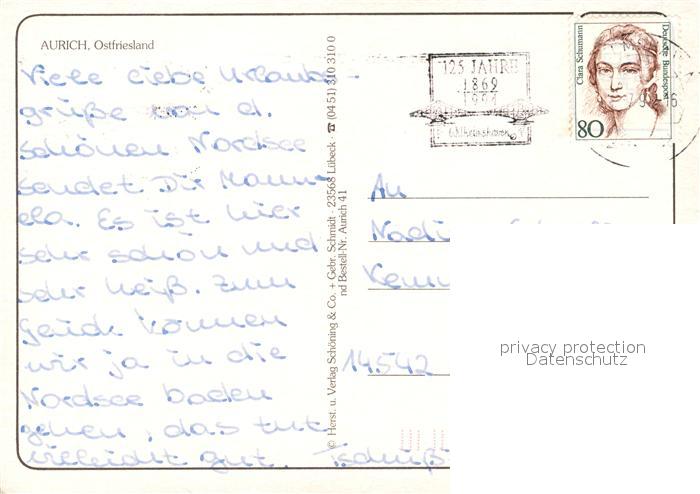 AURICH, Ostfriesland
Viele liebe Urlaubs-
grüße von d.
schönen Nordsee
sendet Dir Manu-
ela. Es ist hier
sehr schön und
sehr heiß. Zum
Glück können
wir ja in die
Nordsee baden
gehen, das tut
vielleicht gut. Tschüß
© Herst. u. Verlag Schöning & Co. + Gebr. Schmidt · 23568 Lübeck ☎ (04 51) 310 310 0
nd Bestell-Nr. Aurich 41
125 JAHRE
1869
1994
Wilhelmshaven
Clara Schumann
Deutsche Bundespost
80
An
14542
privacy protection
Datenschutz